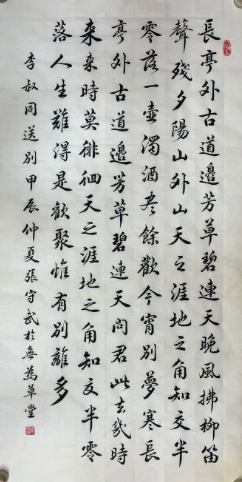 長亭外古道邊芳草碧連天晚風拂柳笛
聲殘夕陽山外山天之涯地之角知交半
零落一壺濁酒盡餘歡今宵別夢寒長
亭外古道邊芳草碧連天問君此去幾時
來來時莫徘徊天之涯地之角知交半零
落人生難得是歡聚惟有別離多
李叔同送別甲辰仲夏張守武於無為草堂